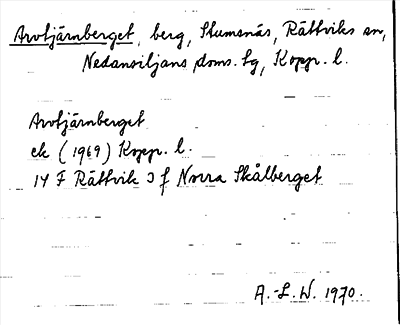 Arvtjärnberget, berg, Stumsnäs, Rättviks sn,
Nedansiljans doms. tg, Kopp. l.
Arvtjärnberget
ek (1969) Kopp. l.
14 F Rättvik 3 f Norra Skålberget
A.-L. W. 1970.